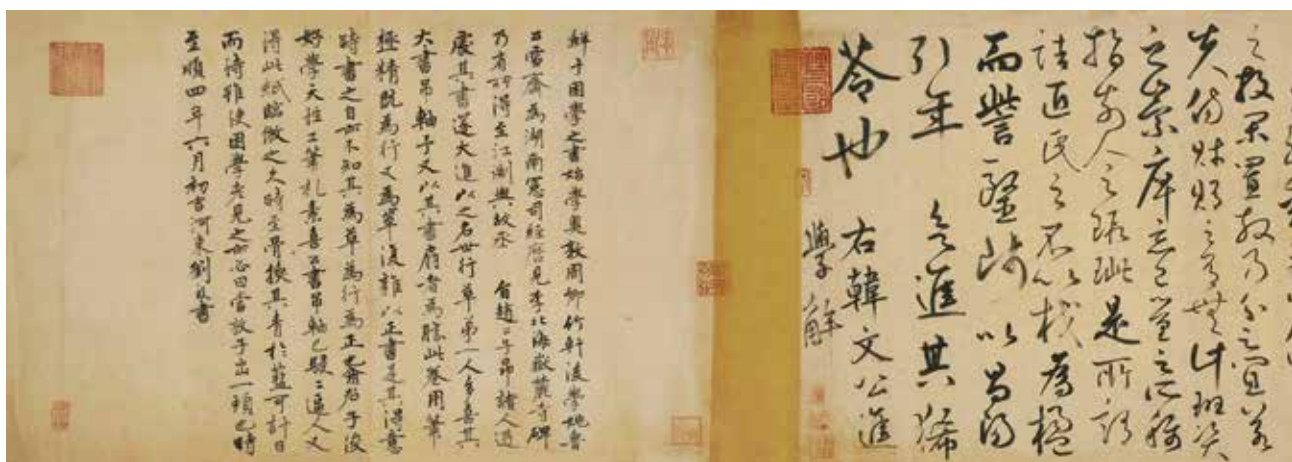 之投閑置散乃分之宜若
夫商財賄之有無計班資
之崇庳忘己量之所稱
指前人之瑕疵是所謂
詰匠氏之不以杙為楹
而訾醫師以昌陽
引年欲進其豨
苓也 右韓文公進
學解
鮮于困學之書始學奧敦周卿竹軒後學姚魯
公雪齋為湖南憲司經歷見李北海嶽麓寺碑
乃有所得至江浙與故承旨趙公子昂諸人遊
處其書遂大進以之名世行草第一人多喜其
大書吊軸子又以其書扇者為勝此卷用筆
極精既為行又為草復雜以正書是其得意
時書之自亦不知其為草為行為正也君子浚
好學天性工筆札素喜公書吊軸已駸駸逼人又
得此紙臨倣之久時至骨換其青於藍可計日
而待雖使困學老見之亦必曰當放子出一頭也時
至順四年六月初吉河東劉致書